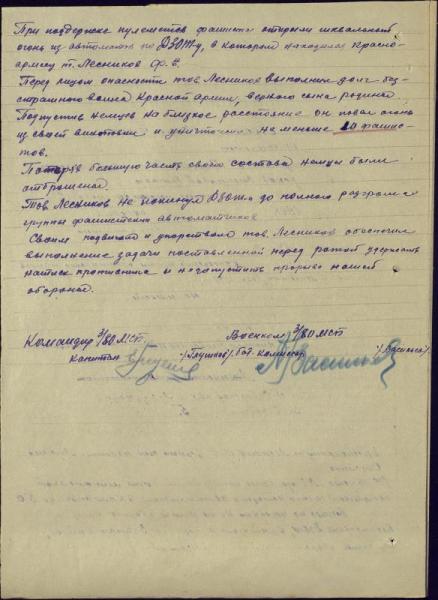 При поддержке пулеметов фашисты открыли шквальный
огонь из автоматов по ДЗОТу, в котором находился красно-
армеец т. Лесников Ф.Е.
Перед лицом опасности тов Лесников выполнил долг бес-
страшного воина Красной армии, верного сына родины
Подпустив немцев на близкое расстояние он повел огонь
из своей винтовки и уничтожил не меньше 20 фашис-
тов.
Потеряв большую часть своего состава немцы были
отброшены.
Тов Лесников не покинул ДЗОТа до полного разгрома
группы фашистских автоматчиков
Своим подвигом и упорством тов. Лесников обеспечил
выполнение задачи поставленной перед ротой удержать
натиск противника и не допустить прорыва нашей
обороны.
Командир 3/80 МСП Военком 3/80 МСП
капитан /Глушков/ бат. комиссар /Васильев/